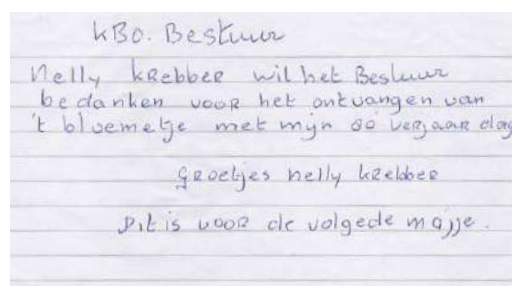 KBO. Bestuur
Nelly kRebber wil het Bestuur
bedanken vooR het ontvangen van
't bloemetje met mijn 80 verjaardag
gRoetjes nelly kRebber
Dit is vooR de volgede majje.